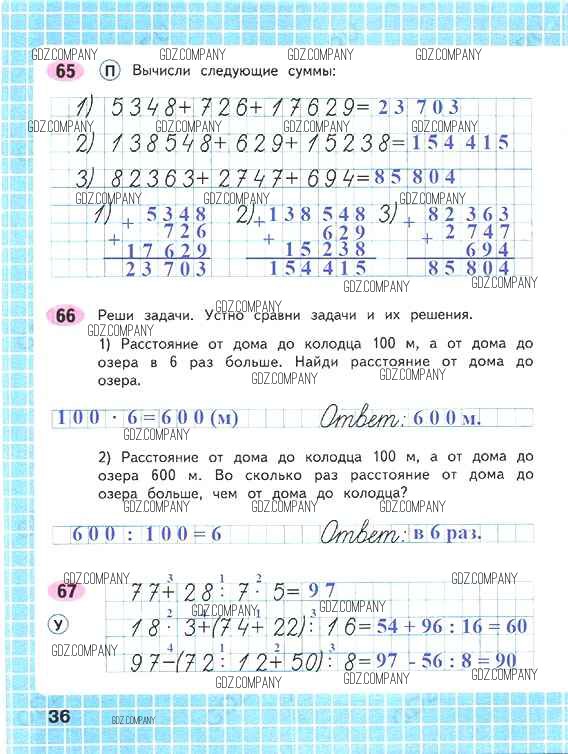 GDZ.COMPANY GDZ.COMPANY GDZ.COMPANY GDZ.COMPANY
65 П Вычисли следующие суммы:
1) 5348+726+17629= 23703
GDZ.COMPANY GDZ.COMPANY GDZ.COMPANY GDZ.COMPANY
2) 138548+629+15238=154415
3) 82363+2747+694=85804
GDZ.COMPANY GDZ.COMPANY GDZ.COMPANY
1) + 5348 2) +138548 3) + 82363
+ 726 + 629 + 2747
17629 15238 694
23703 154415 85804
GDZ.COMPANY GDZ.COMPANY GDZ.COMPANY
GDZ.COMPANY
66 Реши задачи. Устно сравни задачи и их решения.
GDZ.COMPANY
1) Расстояние от дома до колодца 100 м, а от дома до
озера в 6 раз больше. Найди расстояние от дома до
озера.
GDZ.COMPANY GDZ.COMPANY
100 · 6=600 (м) Ответ: 600 м.
GDZ.COMPANY
2) Расстояние от дома до колодца 100 м, а от дома до
озера 600 м. Во сколько раз расстояние от дома до
озера больше, чем от дома до колодца?
GDZ.COMPANY GDZ.COMPANY
600 : 100=6 Ответ: в 6 раз.
GDZ.COMPANY GDZ.COMPANY GDZ.COMPANY
3 1 2
67 77+28:7·5= 97
GDZ.COMPANY GDZ.COMPANY
2 4 1 3
У 18:3+(74+22):16=54 + 96 : 16 = 60
GDZ.COMPANY
4 1 2 3
97-(72:12+50):8=97 - 56 : 8 = 90
GDZ.COMPANY GDZ.COMPANY
36 GDZ.COMPANY